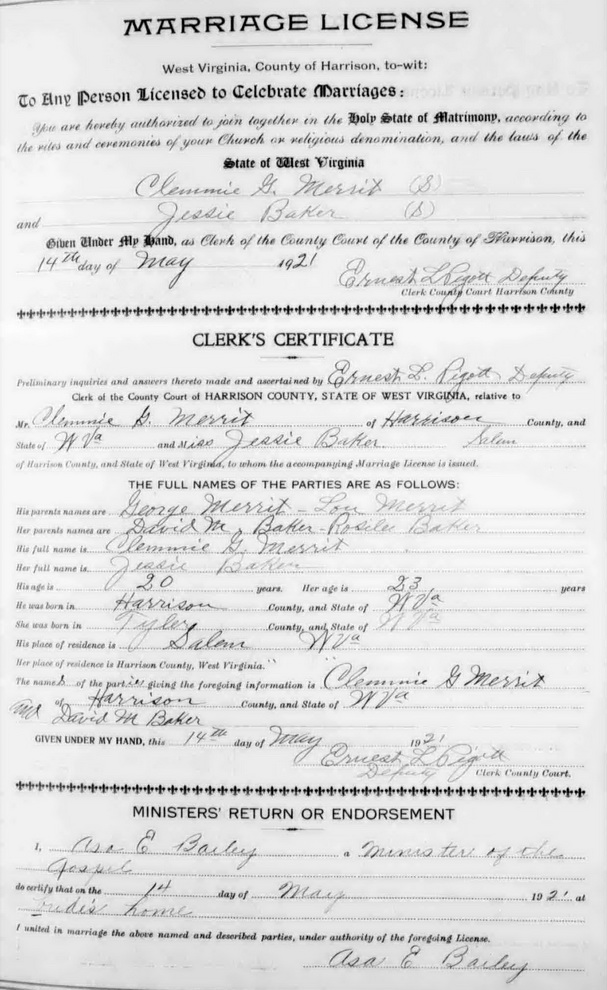 MARRIAGE LICENSE
West Virginia, County of Harrison, to-wit:
To Any Person Licensed to Celebrate Marriages:
You are hereby authorized to join together in the Holy State of Matrimony, according to
the rites and ceremonies of your Church or religious denomination, and the laws of the
State of West Virginia
Clemmie G. Merrit (S)
and Jessie Baker (S)
Given Under My Hand, as Clerk of the County Court of the County of Harrison, this
14th day of May 1921
Ernest L Pigott Deputy
Clerk County Court Harrison County
CLERK'S CERTIFICATE
Preliminary inquiries and answers thereto made and ascertained by Ernest L. Pigott Deputy
Clerk of the County Court of HARRISON COUNTY, STATE OF WEST VIRGINIA, relative to
Mr. Clemmie G. Merrit of Harrison County, and
State of W Va and Miss Jessie Baker Salem
of Harrison County, and State of West Virginia, to whom the accompanying Marriage License is issued.
THE FULL NAMES OF THE PARTIES ARE AS FOLLOWS:
His parents names are George Merrit - Lou Merrit
Her parents names are David M. Baker - Rosilee Baker
His full name is Clemmie G. Merrit
Her full name is Jessie Baker
His age is 20 years. Her age is 23 years
He was born in Harrison County, and State of W Va
She was born in Tyler County, and State of W Va
His place of residence is Salem W Va
Her place of residence is Harrison County, West Virginia. " "
The names of the parties giving the foregoing information is Clemmie G Merrit
of Harrison County, and State of W Va
and David M Baker
GIVEN UNDER MY HAND, this 14th day of May 1921
Ernest L Pigott
Deputy Clerk County Court.
MINISTERS' RETURN OR ENDORSEMENT
I, Asa E Bailey a minister of the
Gospel
do certify that on the 14 day of May 1921 at
brides home
I united in marriage the above named and described parties, under authority of the foregoing License.
Asa E Bailey